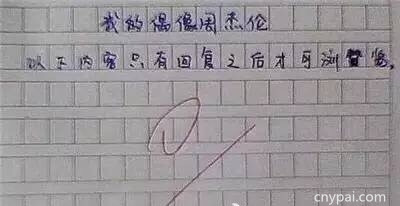 我的偶像周杰伦
以下内容只有回复之后才可浏览。
cnypai.com